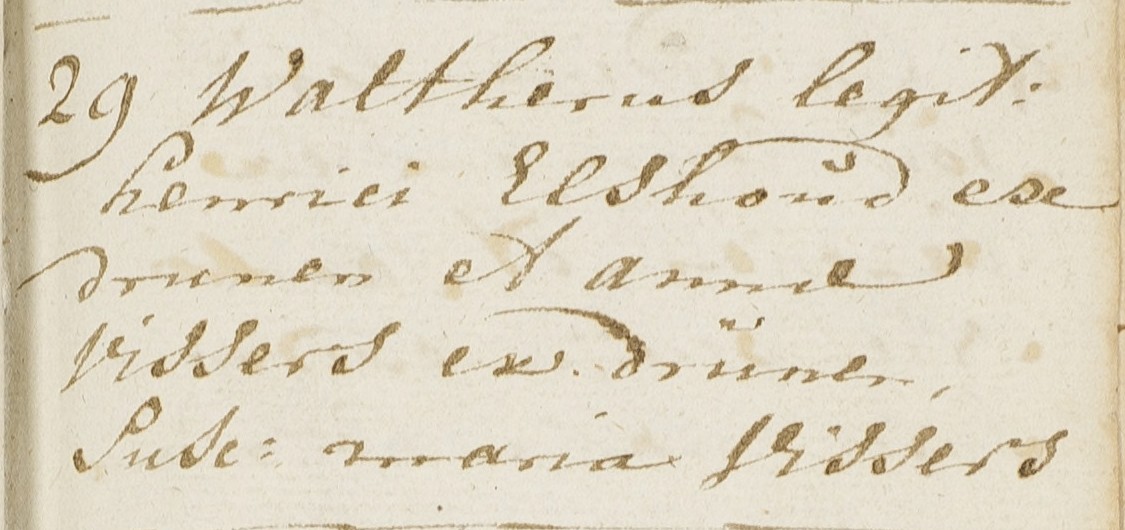 29 Waltherus legit:
henrici Elshoud ex
drunen et annæ
Vissers ex drunen,
Susc: maria Vissers